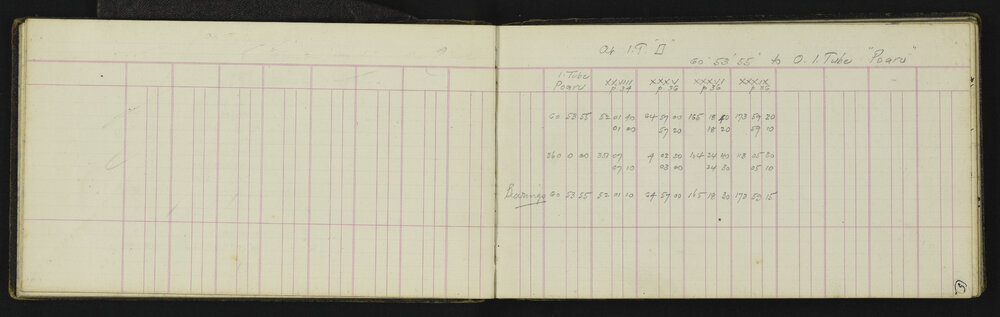 At I.T. "II"
60° 53' 55" to O. I. Tube "Poaru"
I. Tube Poaru XXVIII p.34 XXXV p 36 XXXVI p 36 XXXIX p 36
60 53 55 52 01 10 64 57 00 165 18 40 173 59 20
01 00 57 20 18 20 59 10
360 0 00 351 07 4 02 50 104 24 40 113 05 20
07 10 03 00 24 30 05 10
Bearings 60 53 55 52 01 10 64 57 00 165 18 30 173 59 15